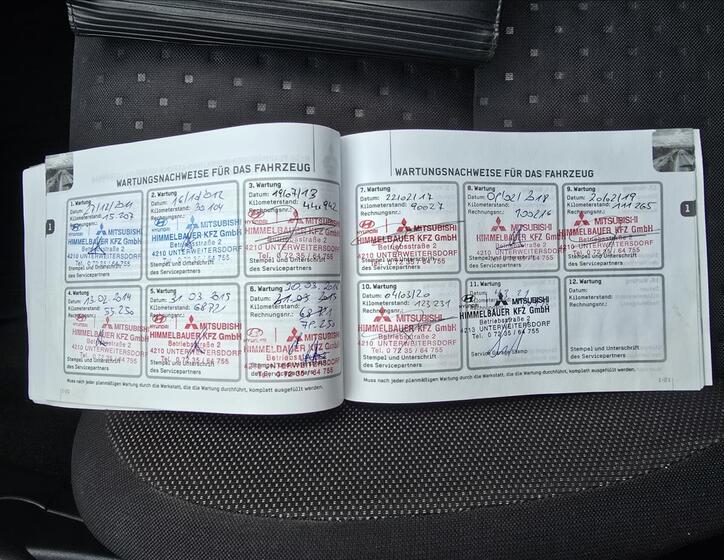 WARTUNGSNACHWEISE FÜR DAS FAHRZEUG
1. Wartung
Datum:
Kilometerstand: 15.207
Rechnungsnr.:
HYUNDAI MITSUBISHI
HIMMELBAUER KFZ GmbH
Betriebsstraße 2
4210 UNTERWEITERSDORF
Tel. 0 72 35 / 64 755
Stempel und Unterschrift
des Servicepartners
2. Wartung
Datum: 16/10/2012
Kilometerstand: 30.104
Rechnungsnr.:
MITSUBISHI
HIMMELBAUER KFZ GmbH
Betriebsstraße 2
4210 UNTERWEITERSDORF
Tel. 0 72 35 / 64 755
Stempel und Unterschrift
des Servicepartners
3. Wartung
Datum: 19/07/13
Kilometerstand: 44.942
Rechnungsnr.:
MITSUBISHI
HIMMELBAUER KFZ GmbH
Betriebsstraße 2
4210 UNTERWEITERSDORF
Tel. 0 72 35 / 64 755
Stempel und Unterschrift
des Servicepartners
4. Wartung
Datum: 13.02.2014
Kilometerstand: 55.250
Rechnungsnr.:
MITSUBISHI
HIMMELBAUER KFZ GmbH
Betriebsstraße 2
4210 UNTERWEITERSDORF
Tel. 0 72 35 / 64 755
Stempel und Unterschrift
des Servicepartners
5. Wartung
Datum: 31.03.2015
Kilometerstand: 68721
Rechnungsnr.:
MITSUBISHI
HIMMELBAUER KFZ GmbH
Betriebsstraße 2
4210 UNTERWEITERSDORF
Tel. 0 72 35 / 64 755
Stempel und Unterschrift
des Servicepartners
6. Wartung
30.03.2016
Datum: 31.03.2015
Kilometerstand: 68721
Rechnungsnr.: 79.250
HYUNDAI MITSUBISHI
HIMMELBAUER KFZ GmbH
Betriebsstraße 2
4210 UNTERWEITERSDORF
Tel. 0 72 35 / 64 755
Stempel und Unterschrift
des Servicepartners
Muss nach jeder planmäßigen Wartung durch die Werkstatt, die die Wartung durchführt, komplett ausgefüllt werden.
1
WARTUNGSNACHWEISE FÜR DAS FAHRZEUG
7. Wartung
Datum: 22/02/17
Kilometerstand: 90027
Rechnungsnr.:
HYUNDAI MITSUBISHI
HIMMELBAUER KFZ GmbH
Betriebsstraße 2
4210 UNTERWEITERSDORF
Tel. 0 72 35 / 64 755
Stempel und Unterschrift
des Servicepartners
8. Wartung
Datum:
Kilometerstand: 100216
Rechnungsnr.:
MITSUBISHI
HIMMELBAUER KFZ GmbH
Betriebsstraße 2
4210 UNTERWEITERSDORF
Tel. 0 72 35 / 64 755
Stempel und Unterschrift
des Servicepartners
9. Wartung
Datum: 20/02/19
Kilometerstand: 111265
Rechnungsnr.:
MITSUBISHI
HIMMELBAUER KFZ GmbH
Betriebsstraße 2
4210 UNTERWEITERSDORF
Tel. 0 72 35 / 64 755
Stempel und Unterschrift
des Servicepartners
10. Wartung
Datum: 04/03/20
Kilometerstand: 123231
Rechnungsnr.:
MITSUBISHI
HIMMELBAUER KFZ GmbH
Betriebsstraße 2
4210 UNTERWEITERSDORF
Tel. 0 72 35 / 64 755
Stempel und Unterschrift
des Servicepartners
11. Wartung
MITSUBISHI
HIMMELBAUER KFZ GmbH
Betriebsstraße 2
4210 UNTERWEITERSDORF
Tel. 0 72 35 / 64 755
12. Wartung
Datum:
Kilometerstand:
Rechnungsnr.:
Stempel und Unterschrift
des Servicepartners
Muss nach jeder planmäßigen Wartung durch die Werkstatt, die die Wartung durchführt, komplett ausgefüllt werden.
1
1-21